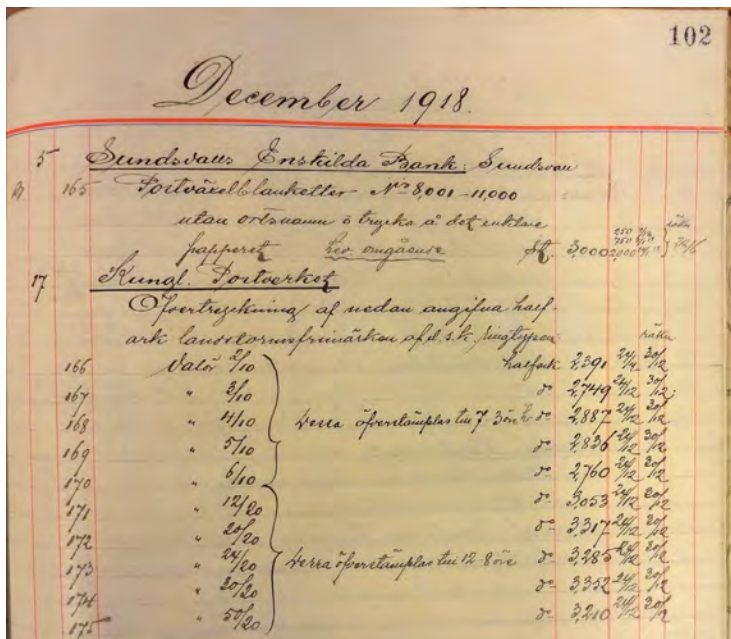 102
December 1918.
5 Sundsvalls Enskilda Bank, Sundsvall
165 Postväxelblanketter No 8,001-11,000
utan ortsnamn å det enklare
papperet Lev. omgående St. 3,000
17 Kungl. Postverket
Öfvertryckning af nedan angifna half-
ark landstormsfrimärken af d.s.k. ringtypen
166 Valör 2/10 halfark 2,391 30/12
167 " 3/10 do 2,749 24/12 30/12
168 " 4/10 Dessa öfverstämplas till 7 3 öre do 2,887 24/12 30/12
169 " 5/10 do 2,836 24/12 30/12
170 " 6/10 do 2,760 24/12 30/12
171 " 12/20 do 3,053 24/12 30/12
172 " 20/20 do 3,317 24/12 30/12
173 " 24/20 Dessa öfverstämplas till 12 8 öre do 3,285 24/12 30/12
174 " 30/20 do 3,352 24/12 30/12
175 " 50/20 do 3,210 24/12 30/12